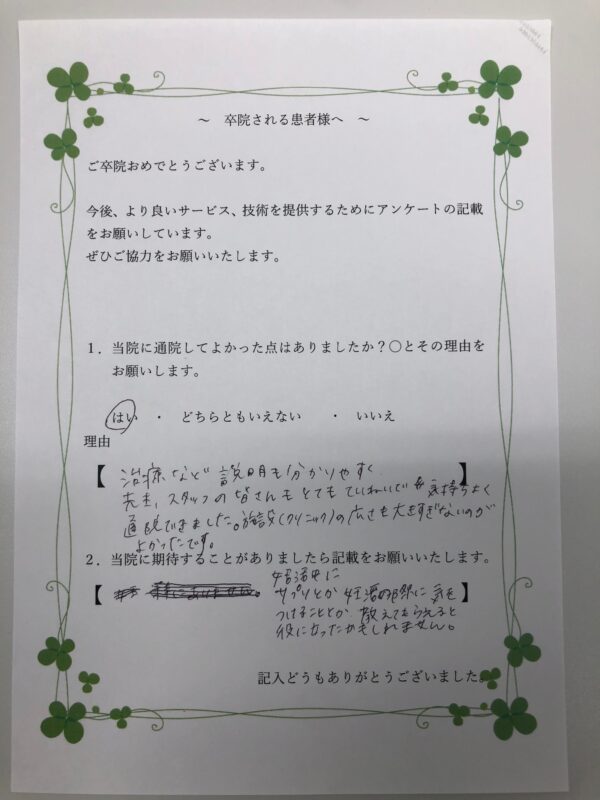 ～ 卒院される患者様へ ～
ご卒院おめでとうございます。
今後、より良いサービス、技術を提供するためにアンケートの記載
をお願いしています。
ぜひご協力をお願いいたします。
１．当院に通院してよかった点はありましたか？〇とその理由を
お願いします。
はい ・ どちらともいえない ・ いいえ
理由
【 治療など説明も分かりやすく 】
先生、スタッフの皆さんもとてもていねいで気持ちよく
通院できました。施設(クリニック)の広さも大きすぎないのが
よかったです。
２．当院に期待することがありましたら記載をお願いいたします。
【 妊活中に
サプリとか妊活の際に気を 】
つけることとか、教えてもらえると
役になったかもしれません。
記入どうもありがとうございました。